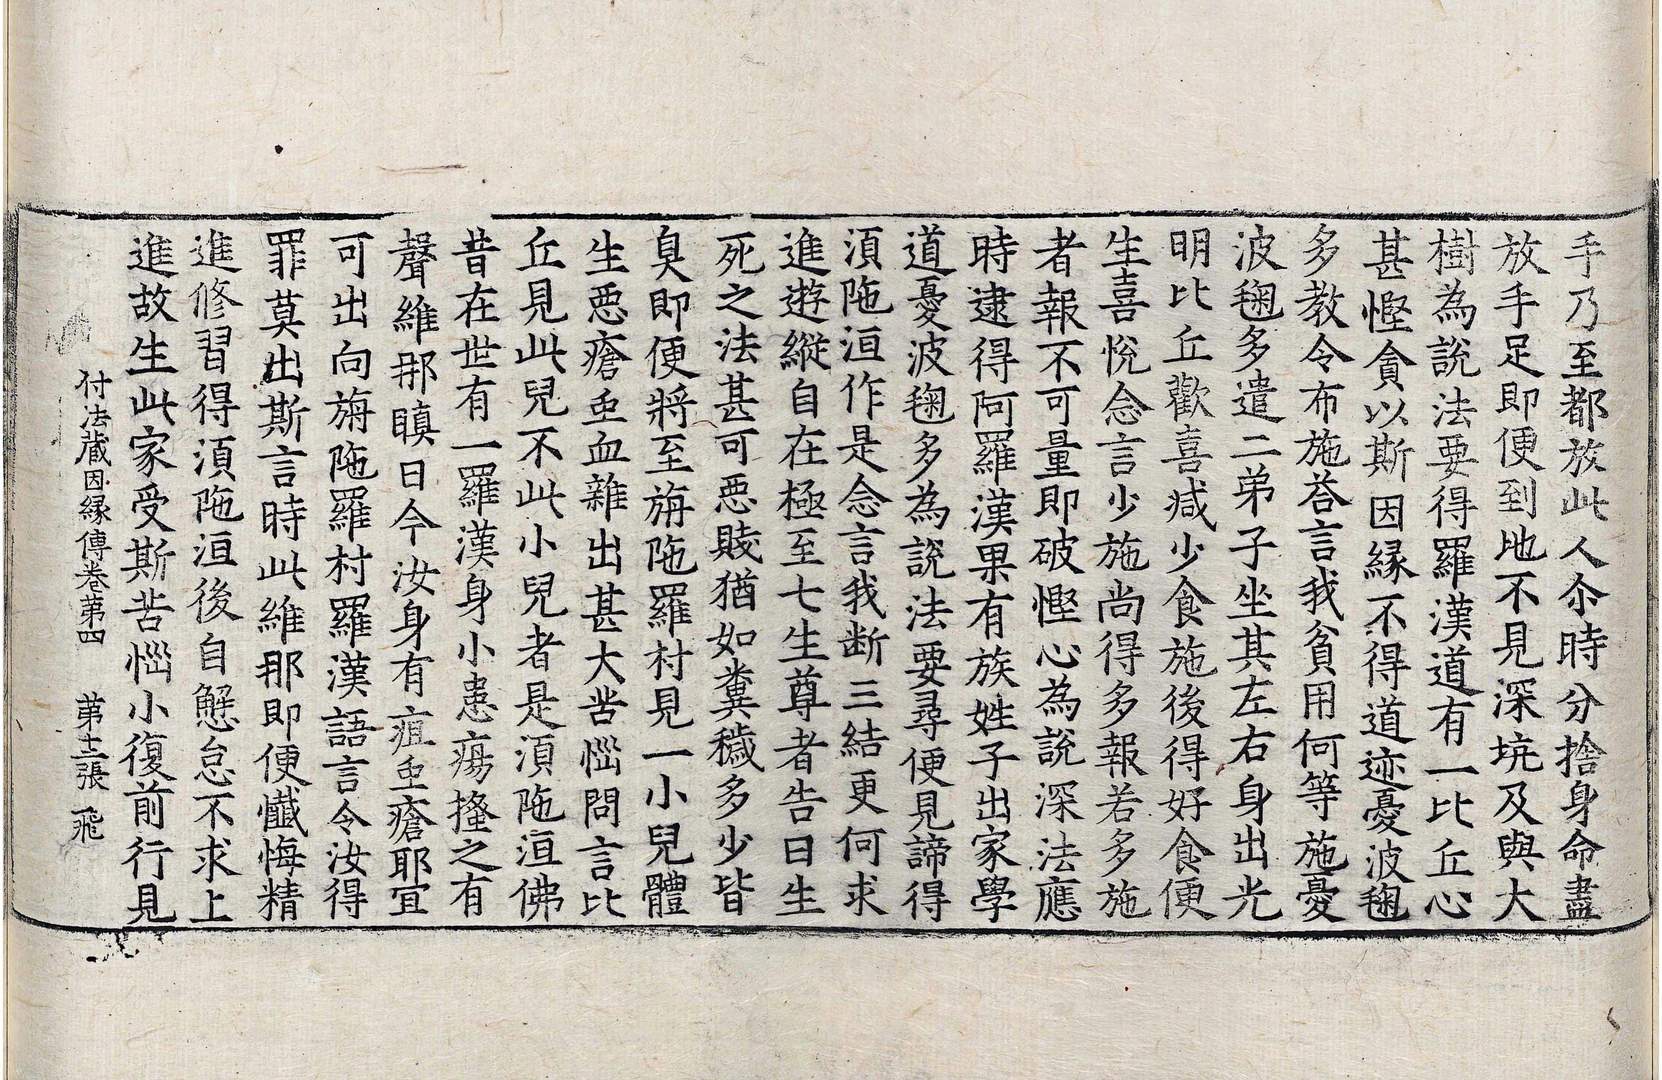 手乃至都放此人尒時分捨身命盡
放手足即便到地不見深坑及與大
樹為說法要得羅漢道有一比丘心
甚慳貪以斯因緣不得道迹憂波毱
多教令布施荅言我貧用何等施憂
波毱多遣二弟子坐其左右身出光
明比丘歡喜減少食施後得好食便
生喜悅念言少施尚得多報若多施
者報不可量即破慳心為說深法應
時逮得阿羅漢果有族姓子出家學
道憂波毱多為說法要尋便見諦得
須陁洹作是念言我断三結更何求
進遊縱自在極至七生尊者告曰生
死之法甚可惡賤猶如糞穢多少皆
臭即便將至旃陁羅村見一小兒體
生惡瘡䖝血雜出甚大苦惱問言比
丘見此兒不此小兒者是須陁洹佛
昔在世有一羅漢身小患瘍搔之有
聲維那瞋曰今汝身有疽䖝瘡耶宜
可出向旃陁羅村羅漢語言令汝得
罪莫出斯言時此維那即便懺悔精
進修習得須陁洹後自懈怠不求上
進故生此家受斯苦惱小復前行見
付法藏因緣傳卷第四　第十二張　飛